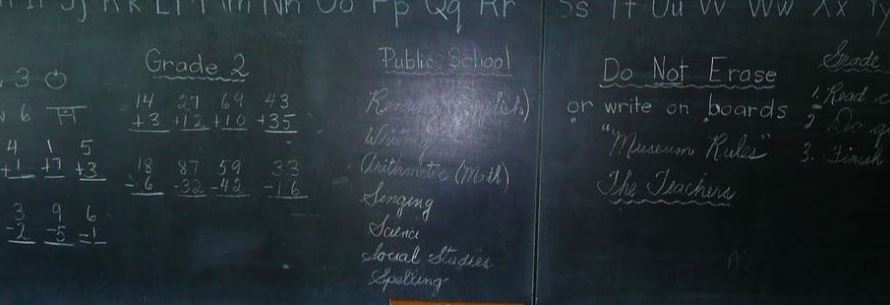 Jj Kk Ll Mm Nn Oo Pp Qq Rr Ss Tt Uu Vv Ww Xx Yy
3
6
4 1 5
+1 +7 +3
3 9 6
-2 -5 -1
Grade 2
14 27 69 43
+3 +12 +10 +35
18 87 59 33
-6 -32 -42 -16
Public School
Reading (English)
Writing
Arithmetic (Math)
Singing
Science
Social Studies
Spelling
Do Not Erase
or write on boards
"Museum Rules"
The Teachers
Grade
1. Read
2 Do
3. Finish